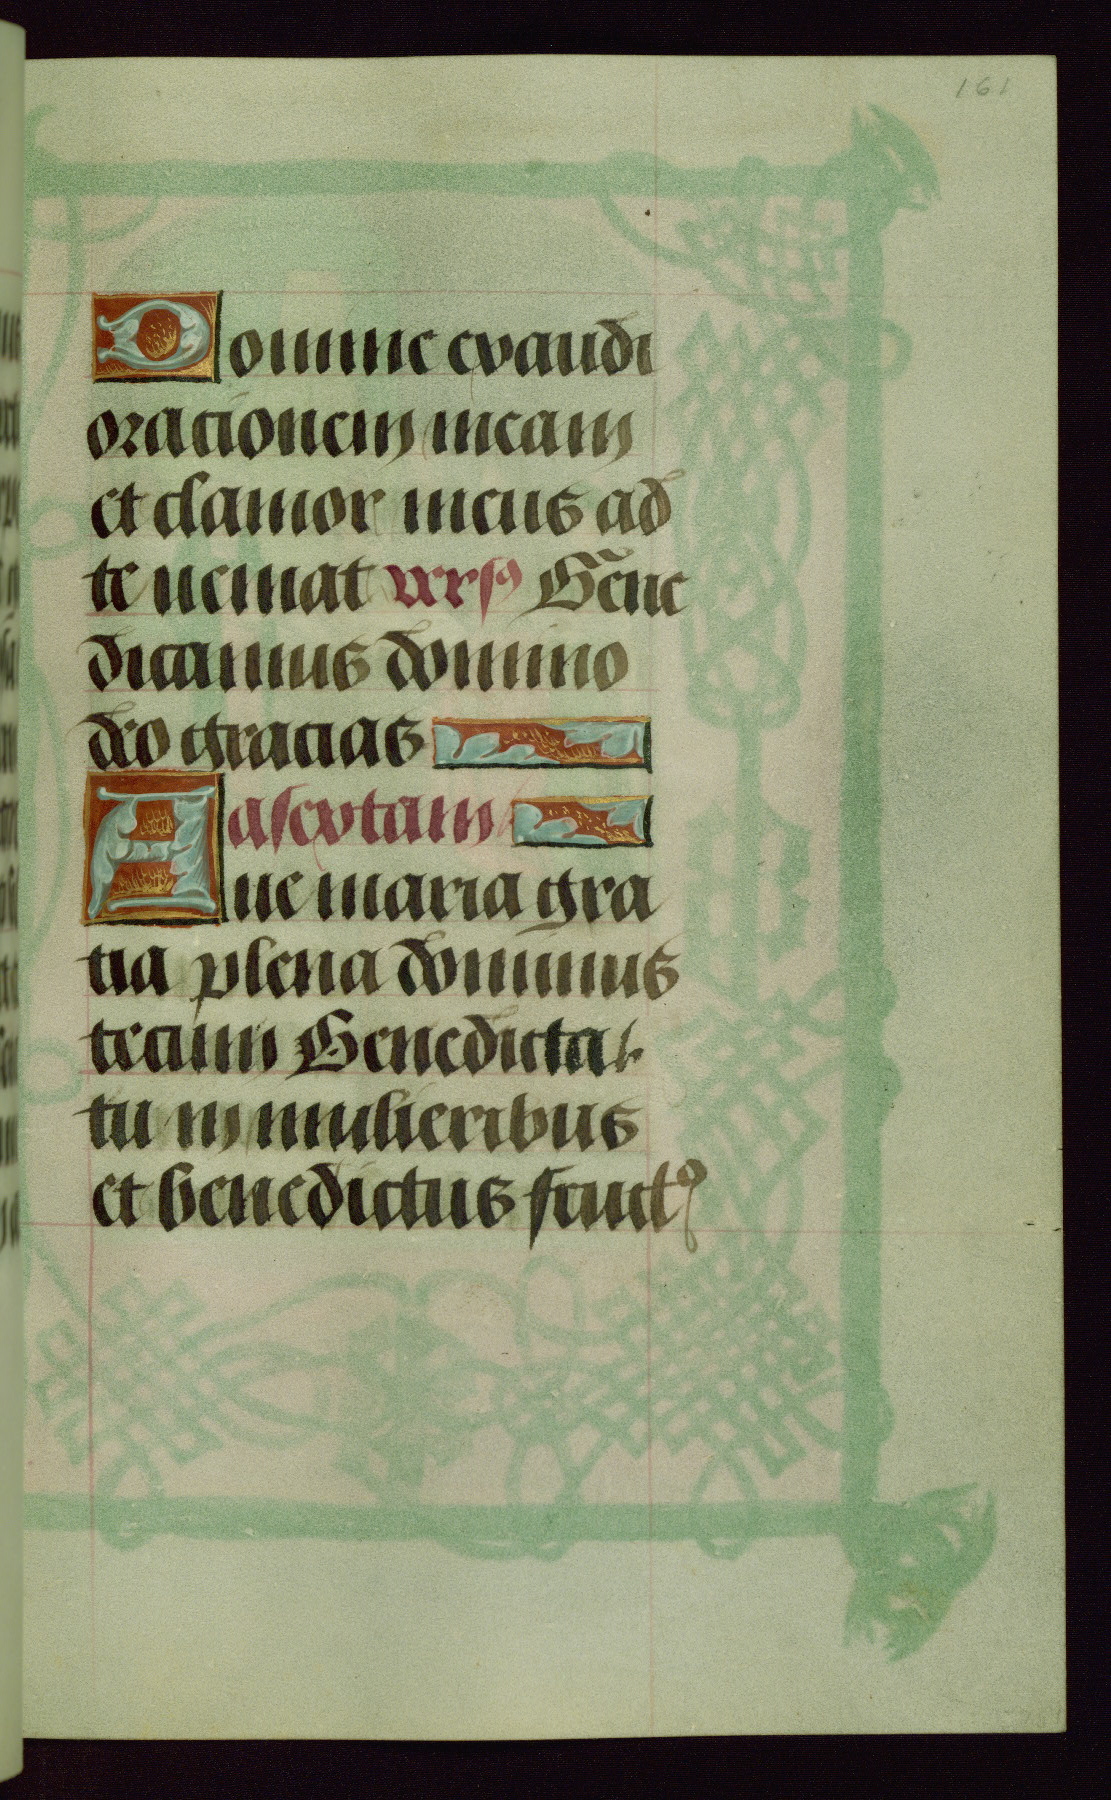 161
Domine exaudi
orationem meam
et clamor meus ad
te veniat vers⁹ Bēne
dicamus domino
deo gracias
ad sextam
Aue maria gra
tia plena dominus
tecum Benedicta
tu in mulieribus
et benedictus fruct⁹